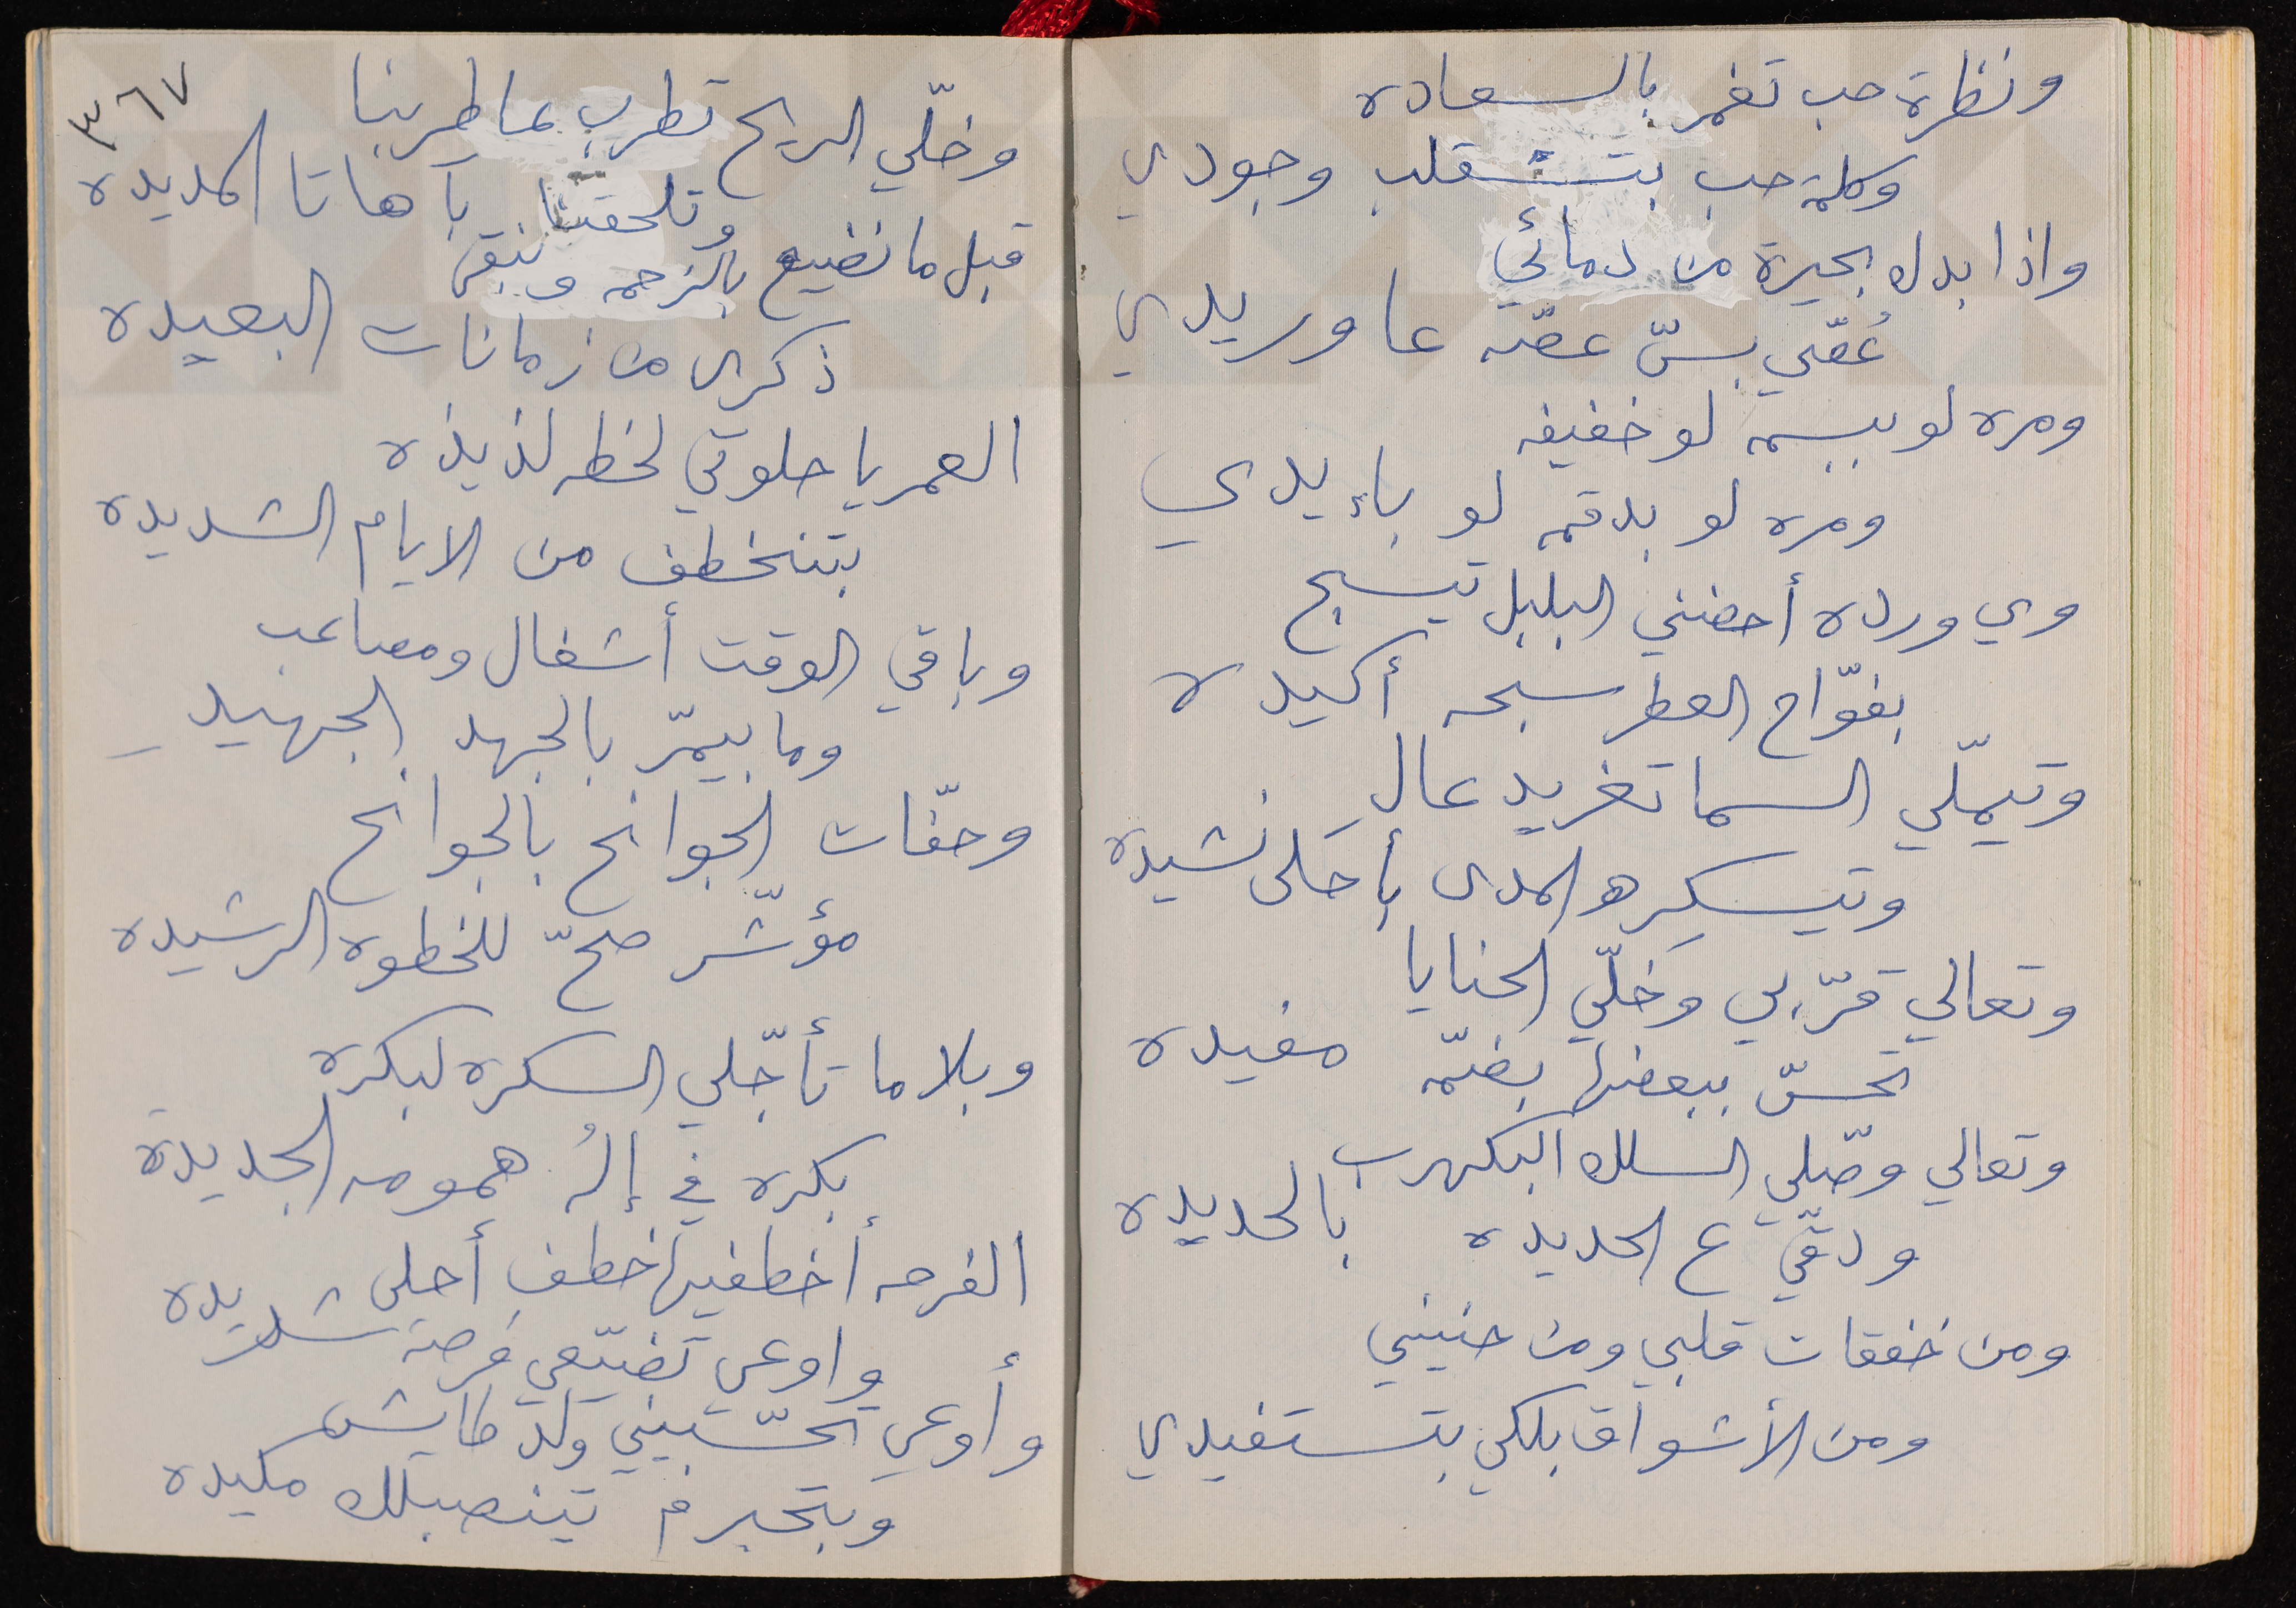 ونظرة حب تغمر بالسعاده
وكلمة حب بتشقلب وجودي
واذا بدك بحيرة من دمائي
عُقّي بسّ عقّه عا وريدي
ومره لو ببسمه لو خفيفه
ومره لو بدقمه لو بإيدي
وي ورده أحضنني البلبل تيسبح
بفوّاح العطر سبحه أكيده
وتيملّي السما تغريد عالِ
وتيسكِر هالمدى بأحلى نشيده
وتعالي قرّبي وخلّي الحنايا
تحسّ ببعضها بضمّه مفيده
وتعالي وصّلي السلك البكهرب
ودقّي ع الحديده بالحديده
ومن خفقات قلبي ومن حنيني
ومن الأشواق بلكي بتستفيدي
٣٦٧
وخلّي الريح تطرب عا طربنا
وتلحقنا بآهاتا المديده
قبل ما نضيع بالزحمه ونبقى
ذكرى من زمانات البعيده
العمر يا حلوتي لحظه لذيذه
بتنخطف من الايام الشديده
وباقي الوقت أشغال ومصاعب
وما بيمرّ بالجهد الجهيد
وحفّات الجوانح بالجوانح
مؤشّر صحّ للخطوه الرشيده
وبلا ما تأجّلي السكره لبكره
بكره في إلُه همومه الجديدة
الفرصه أخطفيها خطف أحلى
واوعي تضيّعي فرصة شديده
وأوعي تحسّبيني ولد طايش
وبتحبرم تينصبلك مكيده